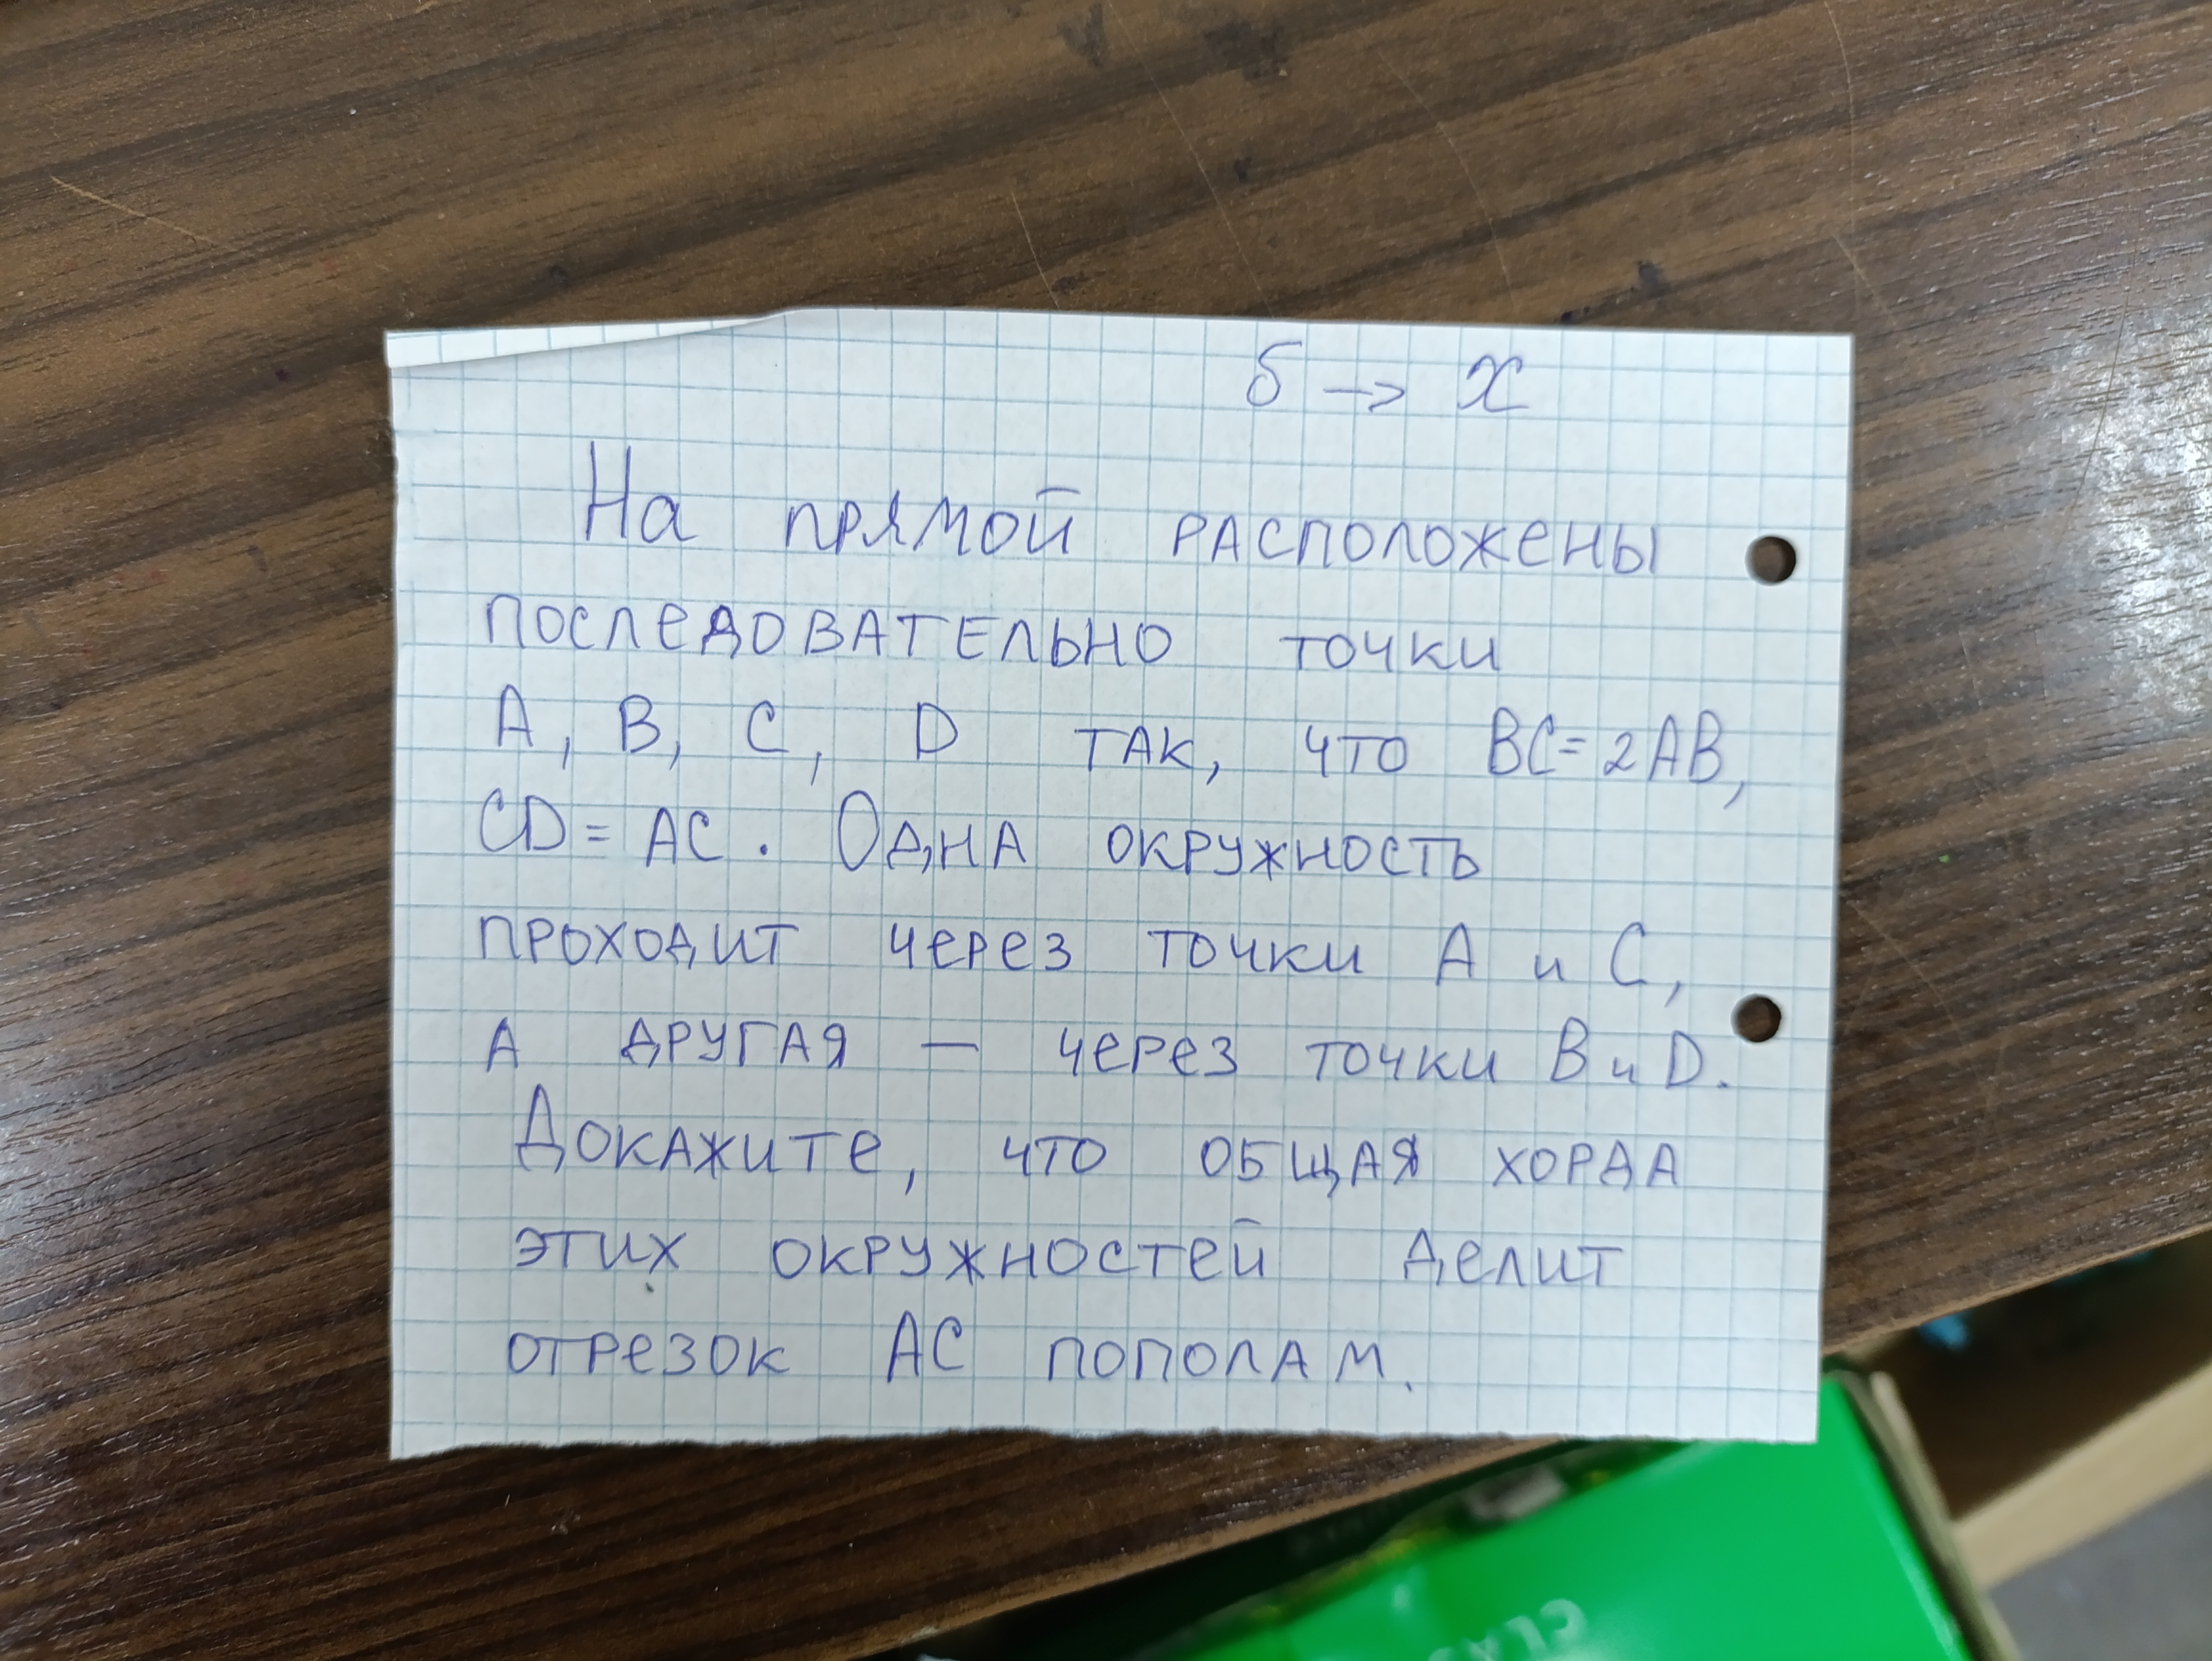 б → х
На прямой расположены
последовательно точки
A, B, C, D так, что BC=2AB,
CD=AC. Одна окружность
проходит через точки A и C,
а другая — через точки B и D.
Докажите, что общая хорда
этих окружностей делит
отрезок AC пополам.
CLAS